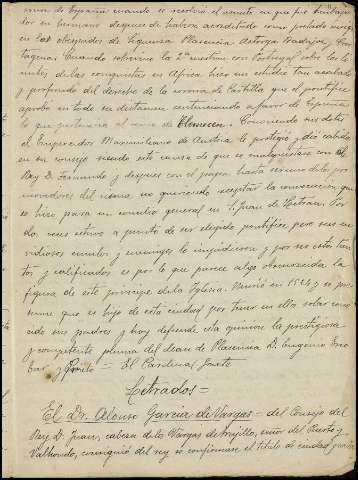 cuando se resolvió el asunto en que fué
despues de haberse acreditado como prelado
en los obispados de Siguenza Plasencia Astorga Badajoz y Car
tagena. Cuando sobrevino la 2ª cuestion con Portugal sobre los li
mites de las conquistas en Africa hizo un estudio tan acabado
y profundo del derecho de la corona de Castilla que el pontífice
aprobó en todo su dictamen sentenciando a favor de España
lo que pertenecia al reino de Tlemecen. Conociendo sus dotes
el Emperador Maximiliano de Austria le protegió y dió cabida
en su consejo siendo esta causa de que se malquistase con el
Rey D. Fernando y despues con el papa hasta ser uno de los pro
movedores del cisma no queriendo aceptar la convocacion que
se hizo para un concilio general en S. Juan de Letran. Por
dos veces estuvo a punto de ser elegido pontífice, pero sus en
vidiosos emulos y enemigos lo impidieron y por no estos tan
tos y calificados es por lo que parece algo obscurecida la
figura de este principe de la Iglesia. Murió en 1523 y se pre
sume que es hijo de esta ciudad por tener en ella solar cono
cido sus padres y hoy defiende esta opinion la prestigiosa
y competente pluma del dean de Plasencia D. Eugenio Esco
bar y Prieto = El Cardenal Inete
Letrados =
El Dr. Alonso Garcia de Vargas = del Consejo del
Rey D. Juan, cabeza de los Vargas de Trujillo, señor del Puerto y
Valhondo, consiguió del rey se confirmase el titulo de ciudad